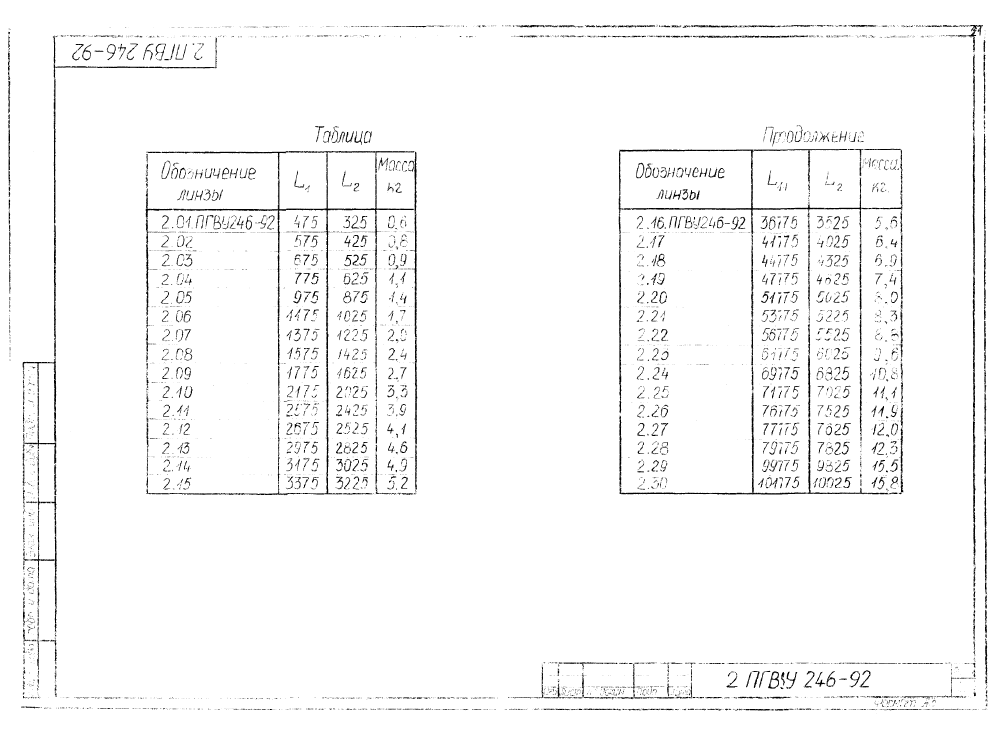 21
2. ПГВУ 246-92
Таблица
Обозначение линзы L1 L2 Масса кг
2.01.ПГВУ246-92 475 325 0,6
2.02 575 425 0,8
2.03 675 525 0,9
2.04 775 625 1,1
2.05 975 875 1,4
2.06 1175 1025 1,7
2.07 1375 1225 2,0
2.08 1575 1425 2,4
2.09 1775 1625 2,7
2.10 2175 2025 3,3
2.11 2575 2425 3,9
2.12 2675 2525 4,1
2.13 2975 2825 4,6
2.14 3175 3025 4,9
2.15 3375 3225 5,2
Продолжение
Обозначение линзы L1 L2 Масса кг.
2.16.ПГВУ246-92 36775 3525 5,6
2.17 41775 4025 6,4
2.18 44775 4325 6,9
2.19 47775 4625 7,4
2.20 51775 5025 8,0
2.21 53775 5225 8,3
2.22 56775 5525 8,8
2.23 61775 6025 9,6
2.24 69775 6825 10,8
2.25 71775 7025 11,1
2.26 76775 7525 11,9
2.27 77775 7625 12,0
2.28 79775 7825 12,3
2.29 99775 9825 15,5
2.30 101775 10025 15,8
2 ПГВУ 246-92